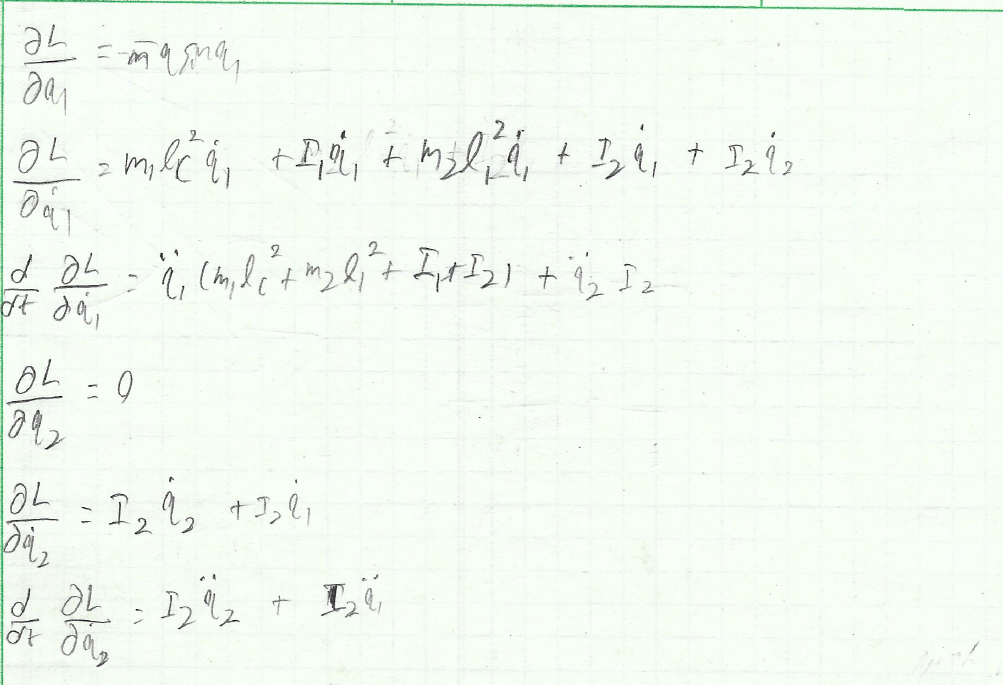 ∂L/∂q₁ = -m̄ q sin q₁
∂L/∂q̇₁ = m₁ l_c² q̇₁ + I₁ q̇₁ + m₂ l₁² q̇₁ + I₂ q̇₁ + I₂ q̇₂
d/dt ∂L/∂q̇₁ = q̈₁ (m₁ l_c² + m₂ l₁² + I₁ + I₂) + q̈₂ I₂
∂L/∂q₂ = 0
∂L/∂q̇₂ = I₂ q̇₂ + I₂ q̇₁
d/dt ∂L/∂q̇₂ = I₂ q̈₂ + I₂ q̈₁